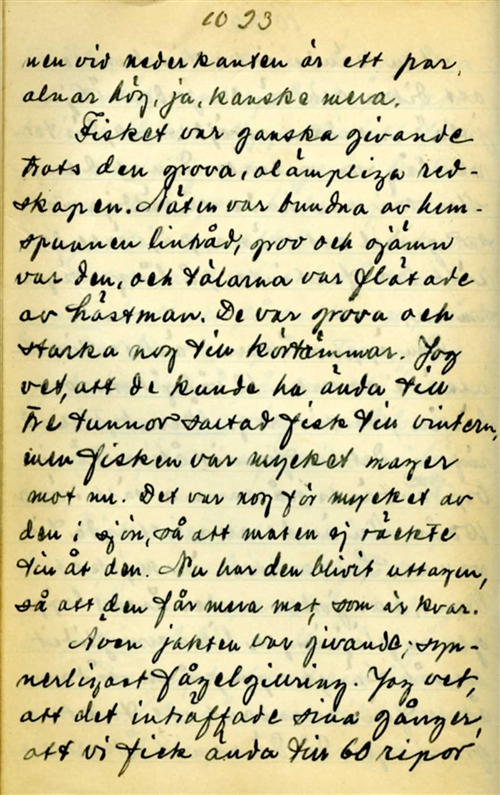 1023
nen vid nederkanten är ett par
alnar hög, ja, kanske mera.
Fisket var ganska givande
trots den grova, olämpliga red-
skapen. Näten var bundna av hem-
spunnen lintråd, grov och ojämn
var den, och tälarna var flätade
av hästman. De var grova och
starka nog till körtömmar. Jag
vet, att de kunde ha ända till
tre tunnor saltad fisk till vintern,
men fisken var mycket mager
mot nu. Det var nog för mycket av
den i sjön, så att maten ej räckte
till åt den. Nu har den blivit uttagen,
så att den får mera mat, som är kvar.
Även jakten var givande; syn-
nerligast fågelgillring. Jag vet,
att det inträffade sina gånger,
att vi fick ända till 60 ripor